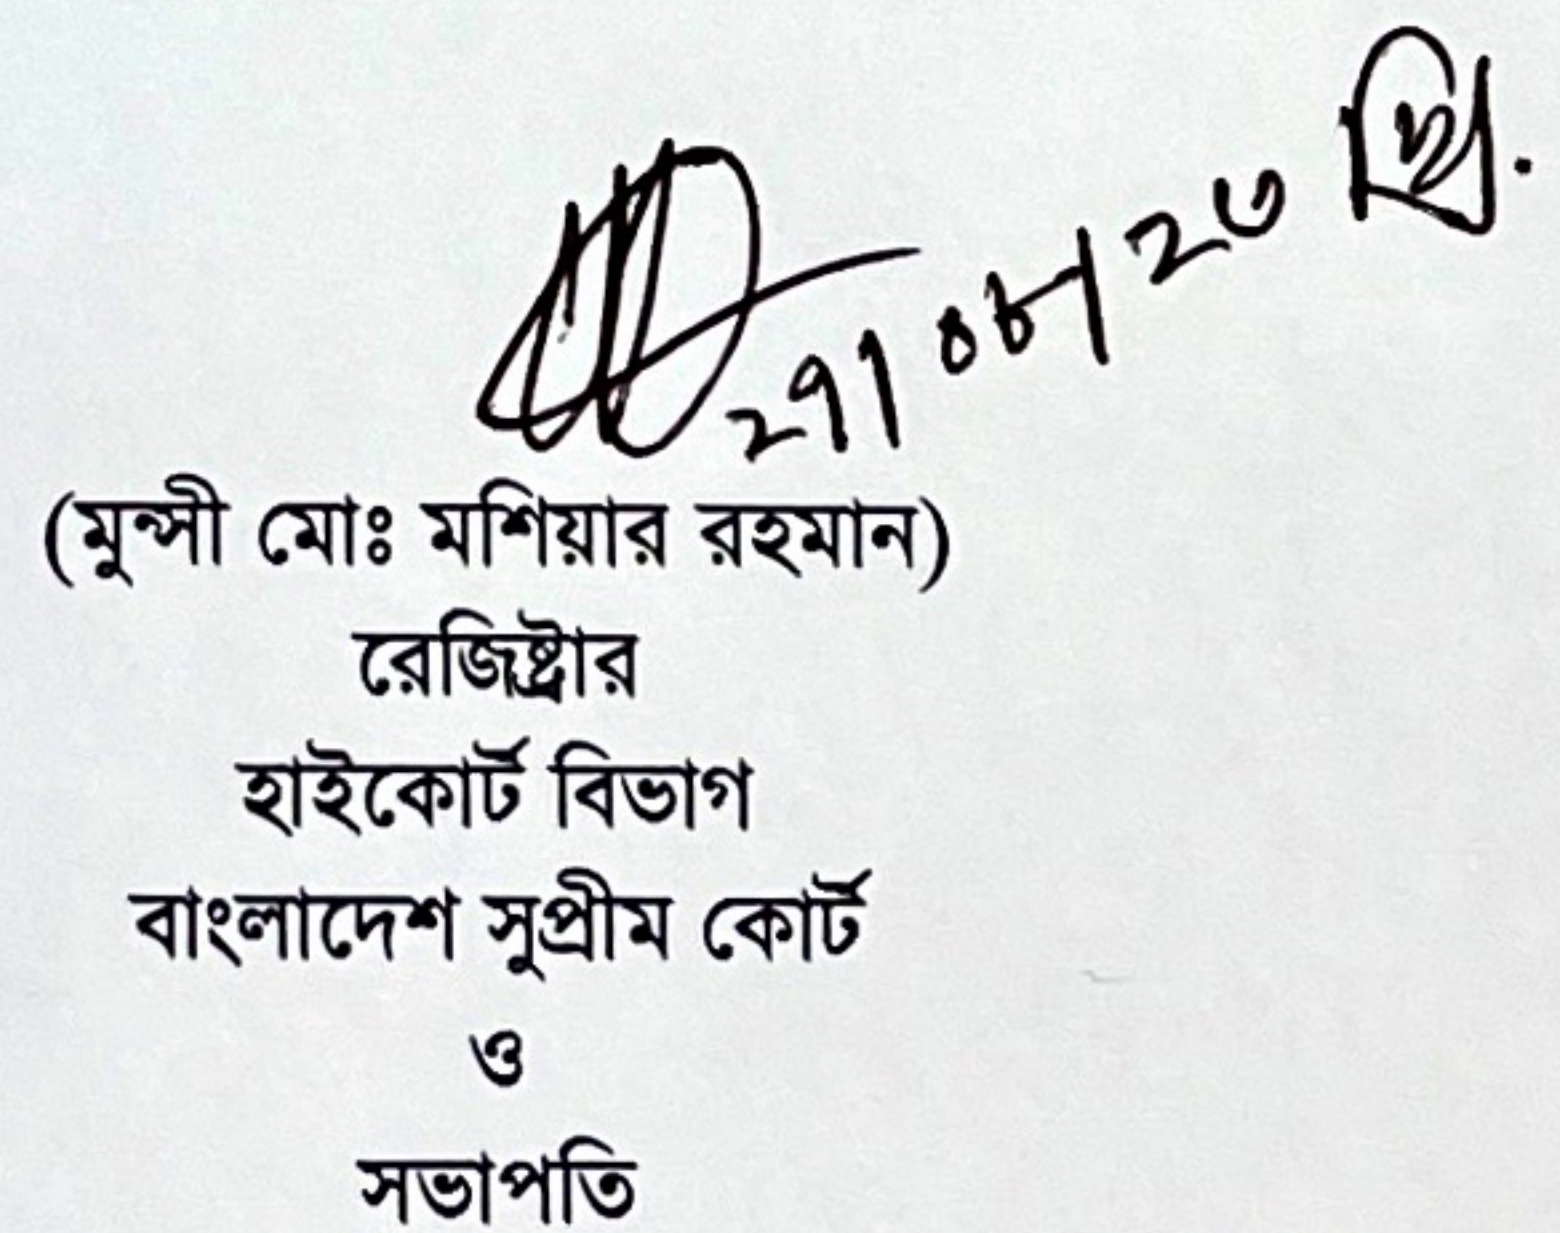 ২৭/০৮/২৩ খ্রি.
(মুন্সী মোঃ মশিয়ার রহমান)
রেজিষ্ট্রার
হাইকোর্ট বিভাগ
বাংলাদেশ সুপ্রীম কোর্ট
ও
সভাপতি